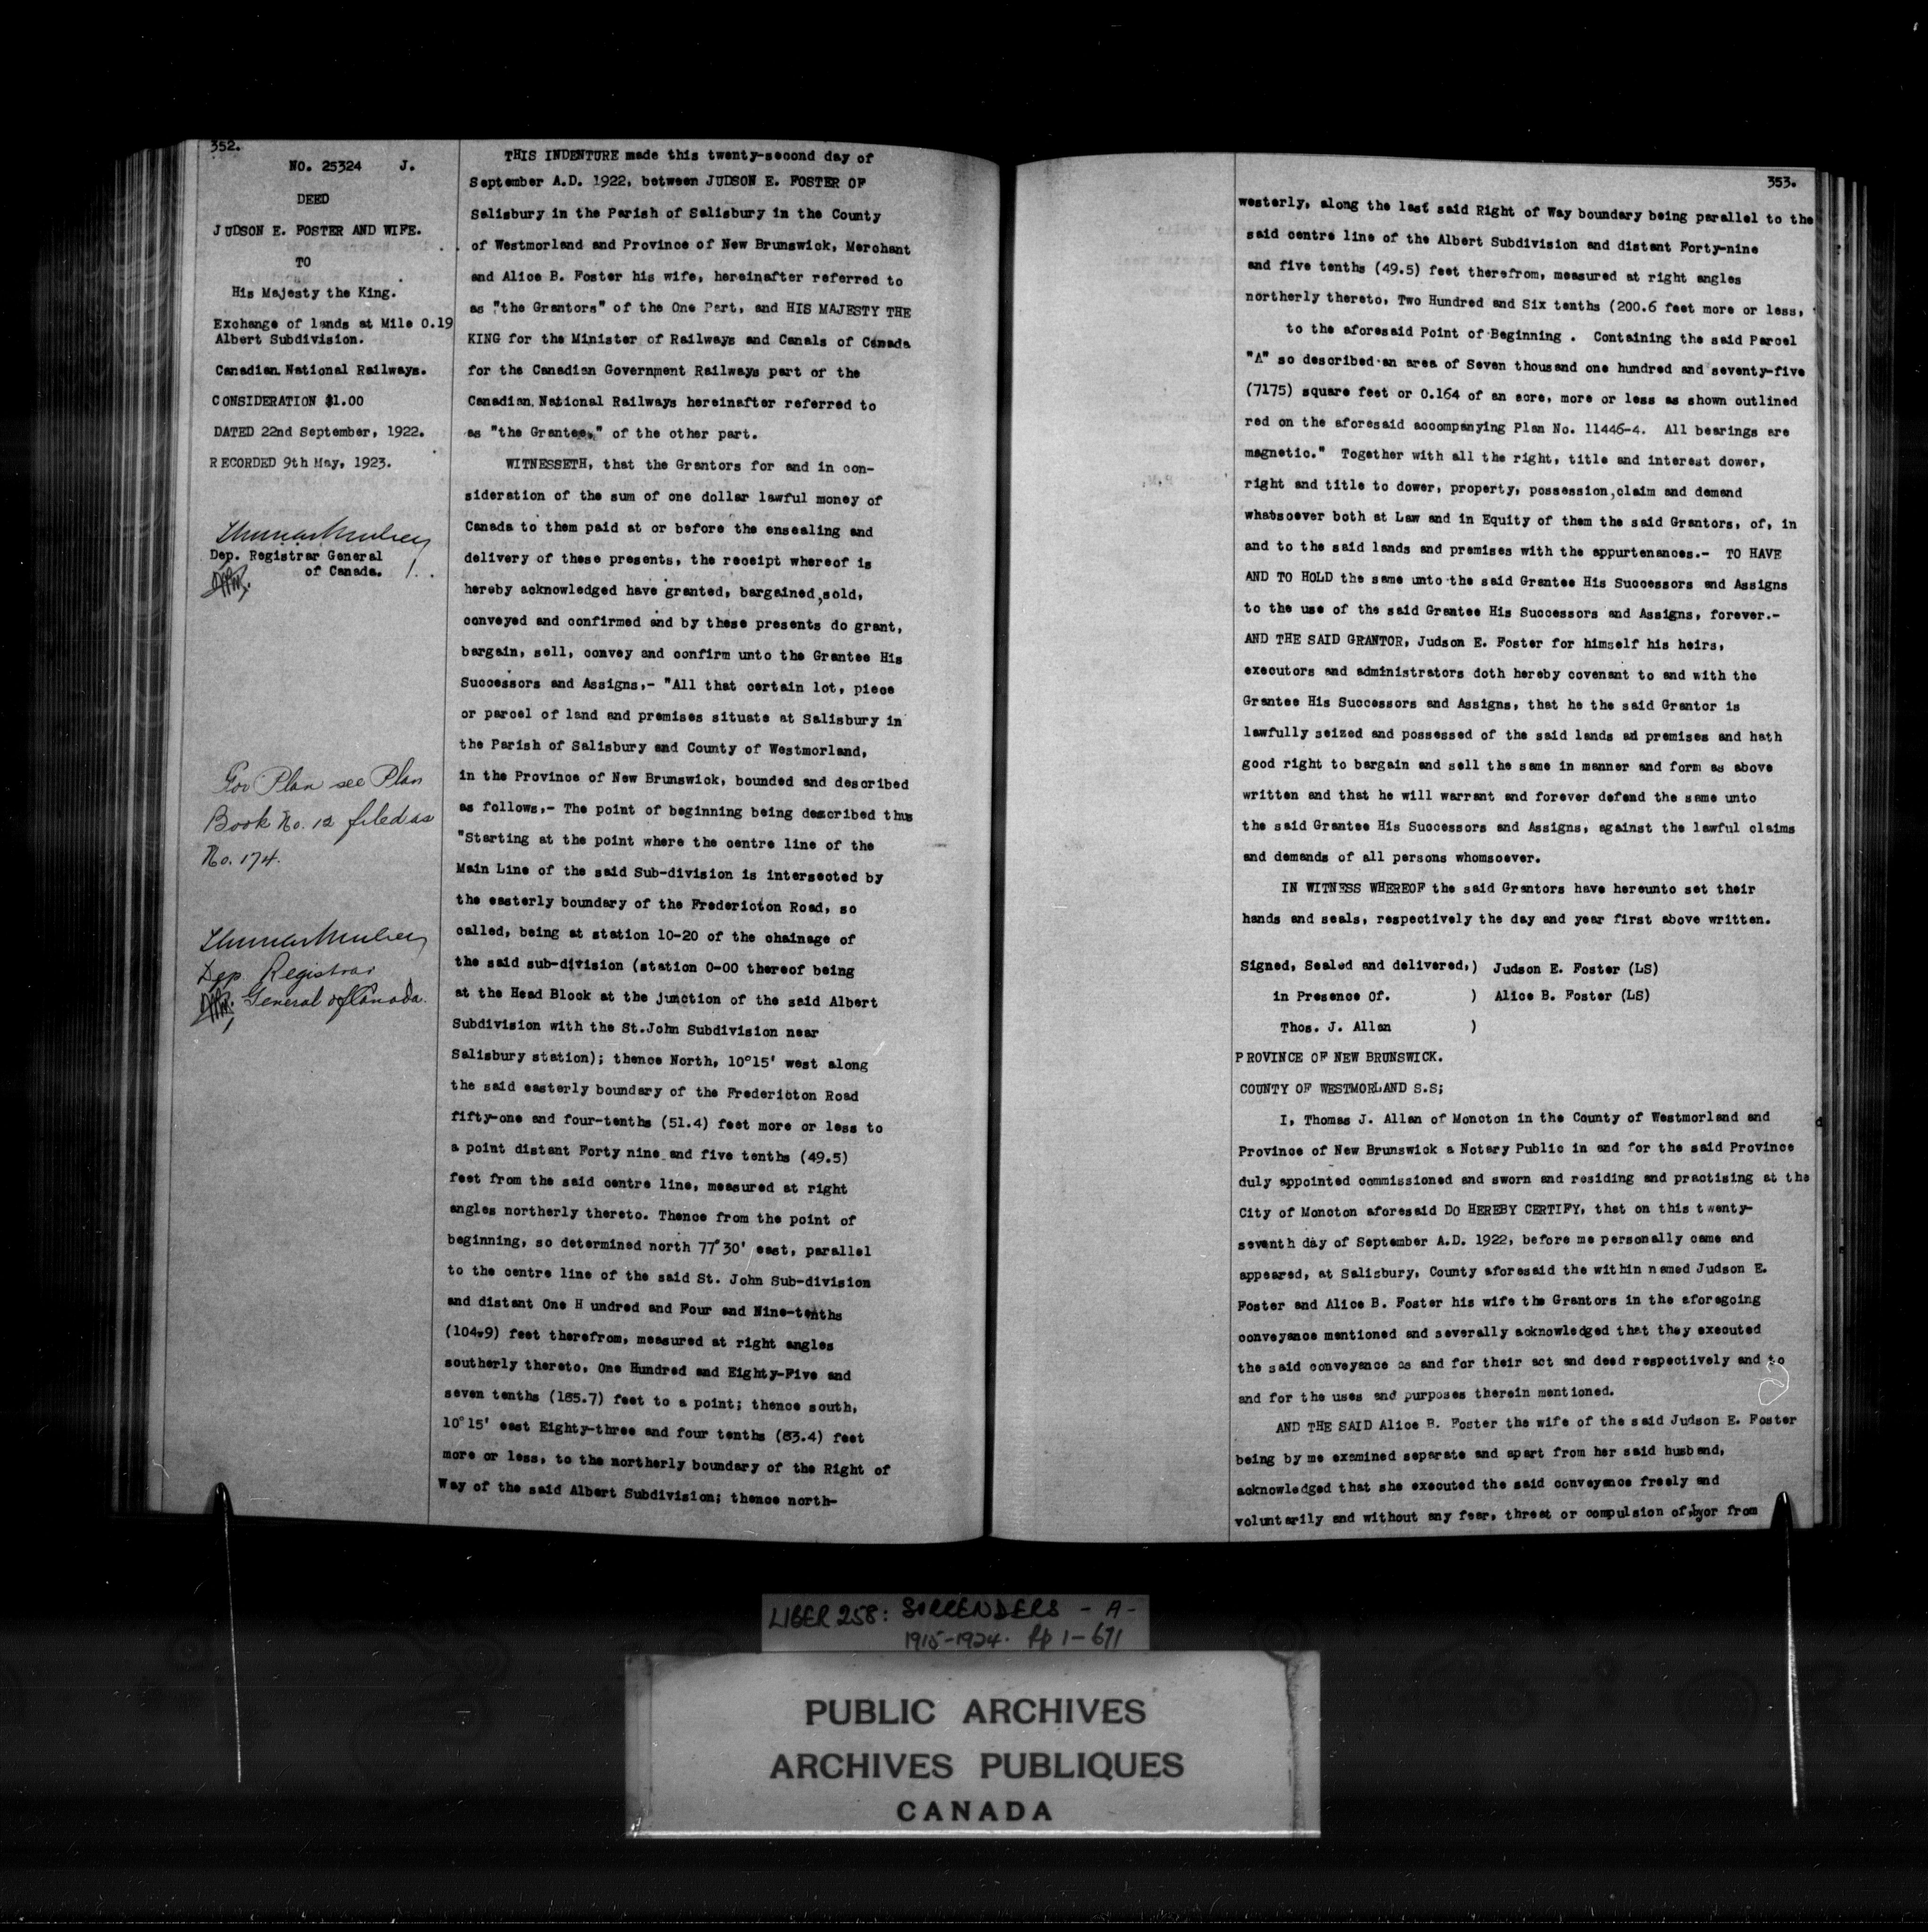 352.
NO. 25324 J.
DEED
JUDSON E. FOSTER AND WIFE.
TO
His Majesty the King.
Exchange of lands at Mile 0.19
Albert Subdivision.
Canadian National Railways.
CONSIDERATION $1.00
DATED 22nd September, 1922.
RECORDED 9th May, 1923.
Dep. Registrar General
of Canada.
For Plan see Plan
Book No. 12 filed as
No. 174.
Dep. Registrar
General of Canada.
THIS INDENTURE made this twenty-second day of
September A.D. 1922, between JUDSON E. FOSTER OF
Salisbury in the Parish of Salisbury in the County
of Westmorland and Province of New Brunswick, Merchant
and Alice B. Foster his wife, hereinafter referred to
as "the Grantors" of the One Part, and HIS MAJESTY THE
KING for the Minister of Railways and Canals of Canada
for the Canadian Government Railways part of the
Canadian National Railways hereinafter referred to
as "the Grantee," of the other part.
WITNESSETH, that the Grantors for and in con-
sideration of the sum of one dollar lawful money of
Canada to them paid at or before the ensealing and
delivery of these presents, the receipt whereof is
hereby acknowledged have granted, bargained, sold,
conveyed and confirmed and by these presents do grant,
bargain, sell, convey and confirm unto the Grantee His
Successors and Assigns,- "All that certain lot, piece
or parcel of land and premises situate at Salisbury in
the Parish of Salisbury and County of Westmorland,
in the Province of New Brunswick, bounded and described
as follows,- The point of beginning being described thus
"Starting at the point where the centre line of the
Main Line of the said Sub-division is intersected by
the easterly boundary of the Fredericton Road, so
called, being at station 10-20 of the chainage of
the said sub-division (station 0-00 thereof being
at the Head Block at the junction of the said Albert
Subdivision with the St.John Subdivision near
Salisbury station); thence North, 10°15' west along
the said easterly boundary of the Fredericton Road
fifty-one and four-tenths (51.4) feet more or less to
a point distant Forty nine and five tenths (49.5)
feet from the said centre line, measured at right
angles northerly thereto. Thence from the point of
beginning, so determined north 77°30' east, parallel
to the centre line of the said St. John Sub-division
and distant One H undred and Four and Nine-tenths
(104.9) feet therefrom, measured at right angles
southerly thereto, One Hundred and Eighty-Five and
seven tenths (185.7) feet to a point; thence south,
10°15' east Eighty-three and four tenths (83.4) feet
more or less, to the northerly boundary of the Right of
Way of the said Albert Subdivision; thence north-
353.
westerly, along the last said Right of Way boundary being parallel to the
said centre line of the Albert Subdivision and distant Forty-nine
and five tenths (49.5) feet therefrom, measured at right angles
northerly thereto, Two Hundred and Six tenths (200.6 feet more or less,
to the aforesaid Point of Beginning . Containing the said Parcel
"A" so described an area of Seven thousand one hundred and seventy-five
(7175) square feet or 0.164 of an acre, more or less as shown outlined
red on the aforesaid accompanying Plan No. 11446-4. All bearings are
magnetic." Together with all the right, title and interest dower,
right and title to dower, property, possession,claim and demand
whatsoever both at Law and in Equity of them the said Grantors, of, in
and to the said lands and premises with the appurtenances.- TO HAVE
AND TO HOLD the same unto the said Grantee His Successors and Assigns
to the use of the said Grantee His Successors and Assigns, forever.-
AND THE SAID GRANTOR, Judson E. Foster for himself his heirs,
executors and administrators doth hereby covenant to and with the
Grantee His Successors and Assigns, that he the said Grantor is
lawfully seized and possessed of the said lands ad premises and hath
good right to bargain and sell the same in manner and form as above
written and that he will warrant and forever defend the same unto
the said Grantee His Successors and Assigns, against the lawful claims
and demands of all persons whomsoever.
IN WITNESS WHEREOF the said Grantors have hereunto set their
hands and seals, respectively the day and year first above written.
Signed, Sealed and delivered,) Judson E. Foster (LS)
in Presence Of. ) Alice B. Foster (LS)
Thos. J. Allan )
PROVINCE OF NEW BRUNSWICK.
COUNTY OF WESTMORLAND S.S;
I, Thomas J. Allan of Moncton in the County of Westmorland and
Province of New Brunswick a Notary Public in and for the said Province
duly appointed commissioned and sworn and residing and practising at the
City of Moncton aforesaid DO HEREBY CERTIFY, that on this twenty-
seventh day of September A.D. 1922, before me personally came and
appeared, at Salisbury, County aforesaid the within named Judson E.
Foster and Alice B. Foster his wife the Grantors in the aforegoing
conveyance mentioned and severally acknowledged that they executed
the said conveyance as and for their act and deed respectively and to
and for the uses and purposes therein mentioned.
AND THE SAID Alice B. Foster the wife of the said Judson E. Foster
being by me examined separate and apart from her said husband,
acknowledged that she executed the said conveyance freely and
voluntarily and without any fear, threat or compulsion of,by or from
LIBER 258: SURRENDERS - A -
1915-1924. Pp 1-671
PUBLIC ARCHIVES
ARCHIVES PUBLIQUES
CANADA